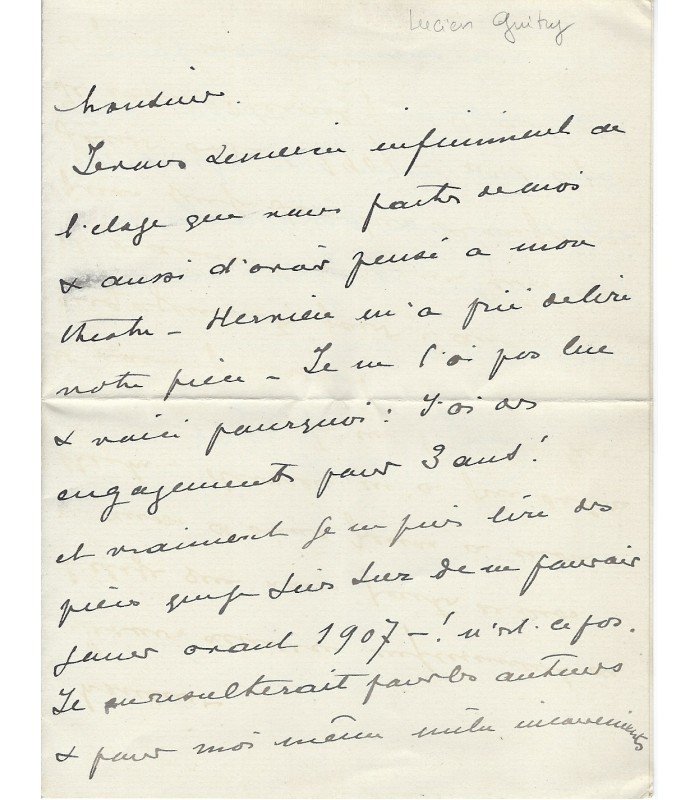 Lucien Guitry
Monsieur.
Je vous remercie infiniment de
l'éloge que vous faites de moi
& aussi d'avoir pensé a mon
theatre – m'a prié de lire
votre pièce – Je ne l'ai pas lue
& voici pourquoi : J'ai des
engagements pour 3 ans !
et vraiment je ne puis lire des
pièces que je suis sur de ne pouvoir
jouer avant 1907 – ! n'est-ce pas.
Il en resulterait pour les auteurs
& pour moi même mille inconvenients